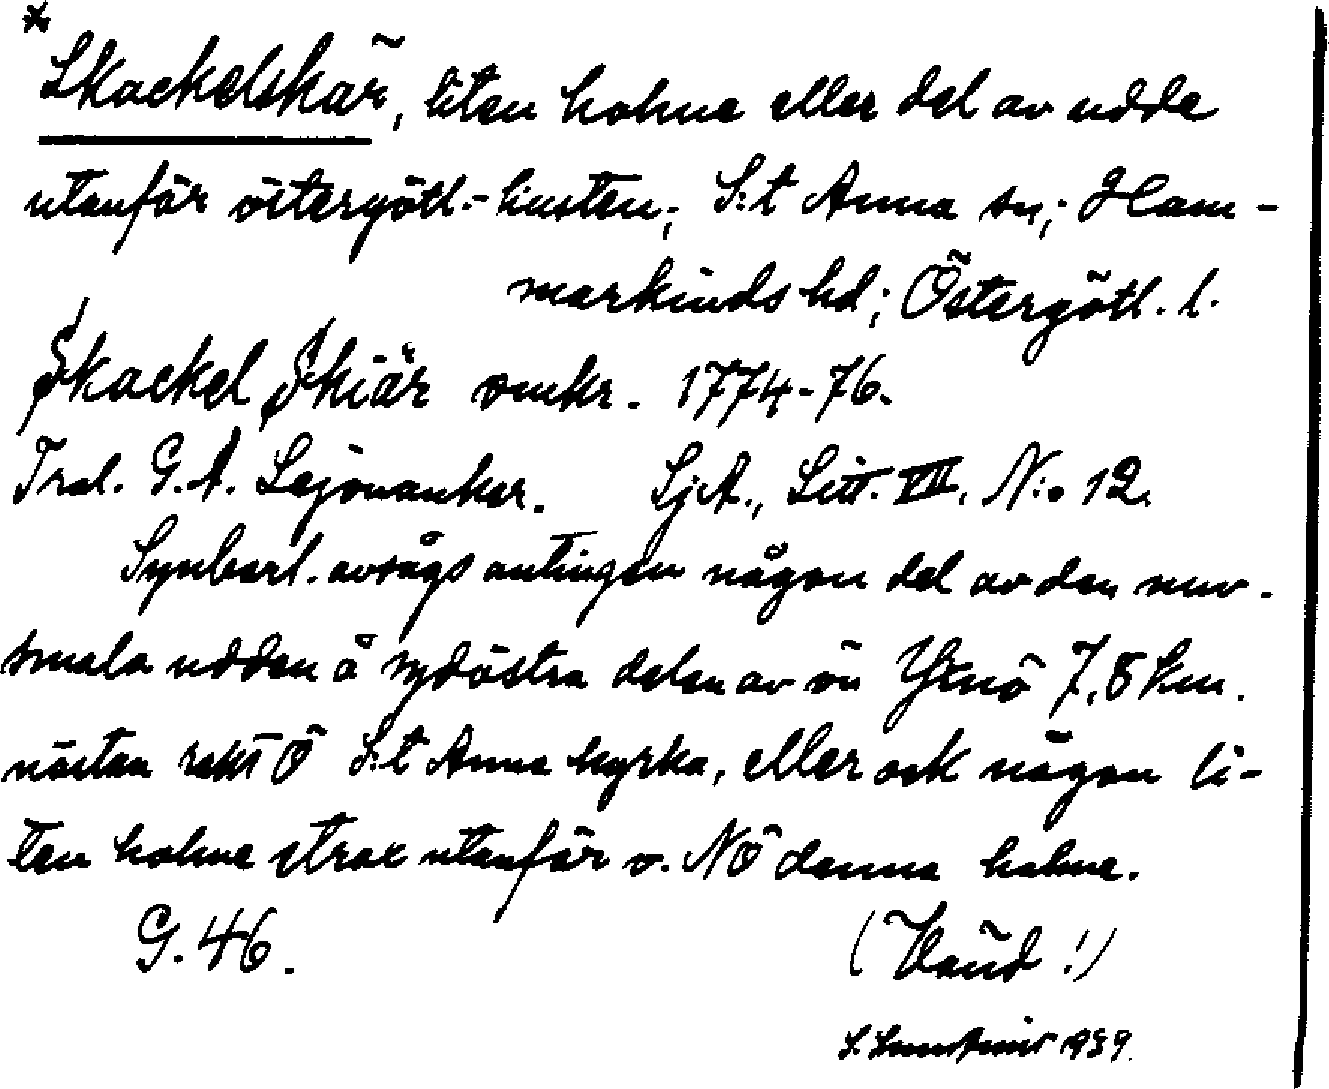 * Skackelskär, liten holme eller del av udde
utanför östergötl.-kusten; S:t Anna sn; Ham-
markinds hd; Östergötl. l.
Skackel Skiär omkr. 1774-76.
Tral. G. A. Lejonanker. SjA., Litt. VII. N:o 12.
Synbarl. avsågs antingen någon del av den nuv.
smala udden å sydöstra delen av ön Yxnö 7,8 km.
nästan rakt Ö S:t Anna kyrka, eller ock någon li-
ten holme strax utanför o. NÖ denna holme.
G. 46. (Vänd!)
1939.